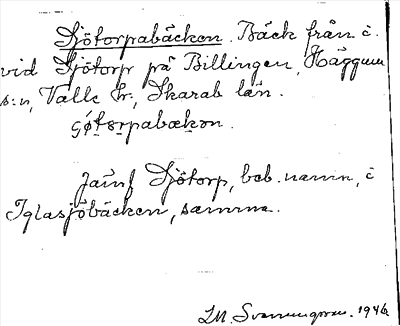 Sjötorpabäcken. Bäck från o.
vid Sjötorp på Billingen, Häggum
s:n, Valle hr, Skarab län.
Jämf Sjötorp, beb. namn, o
Iglasjöbäcken, samma.
1946